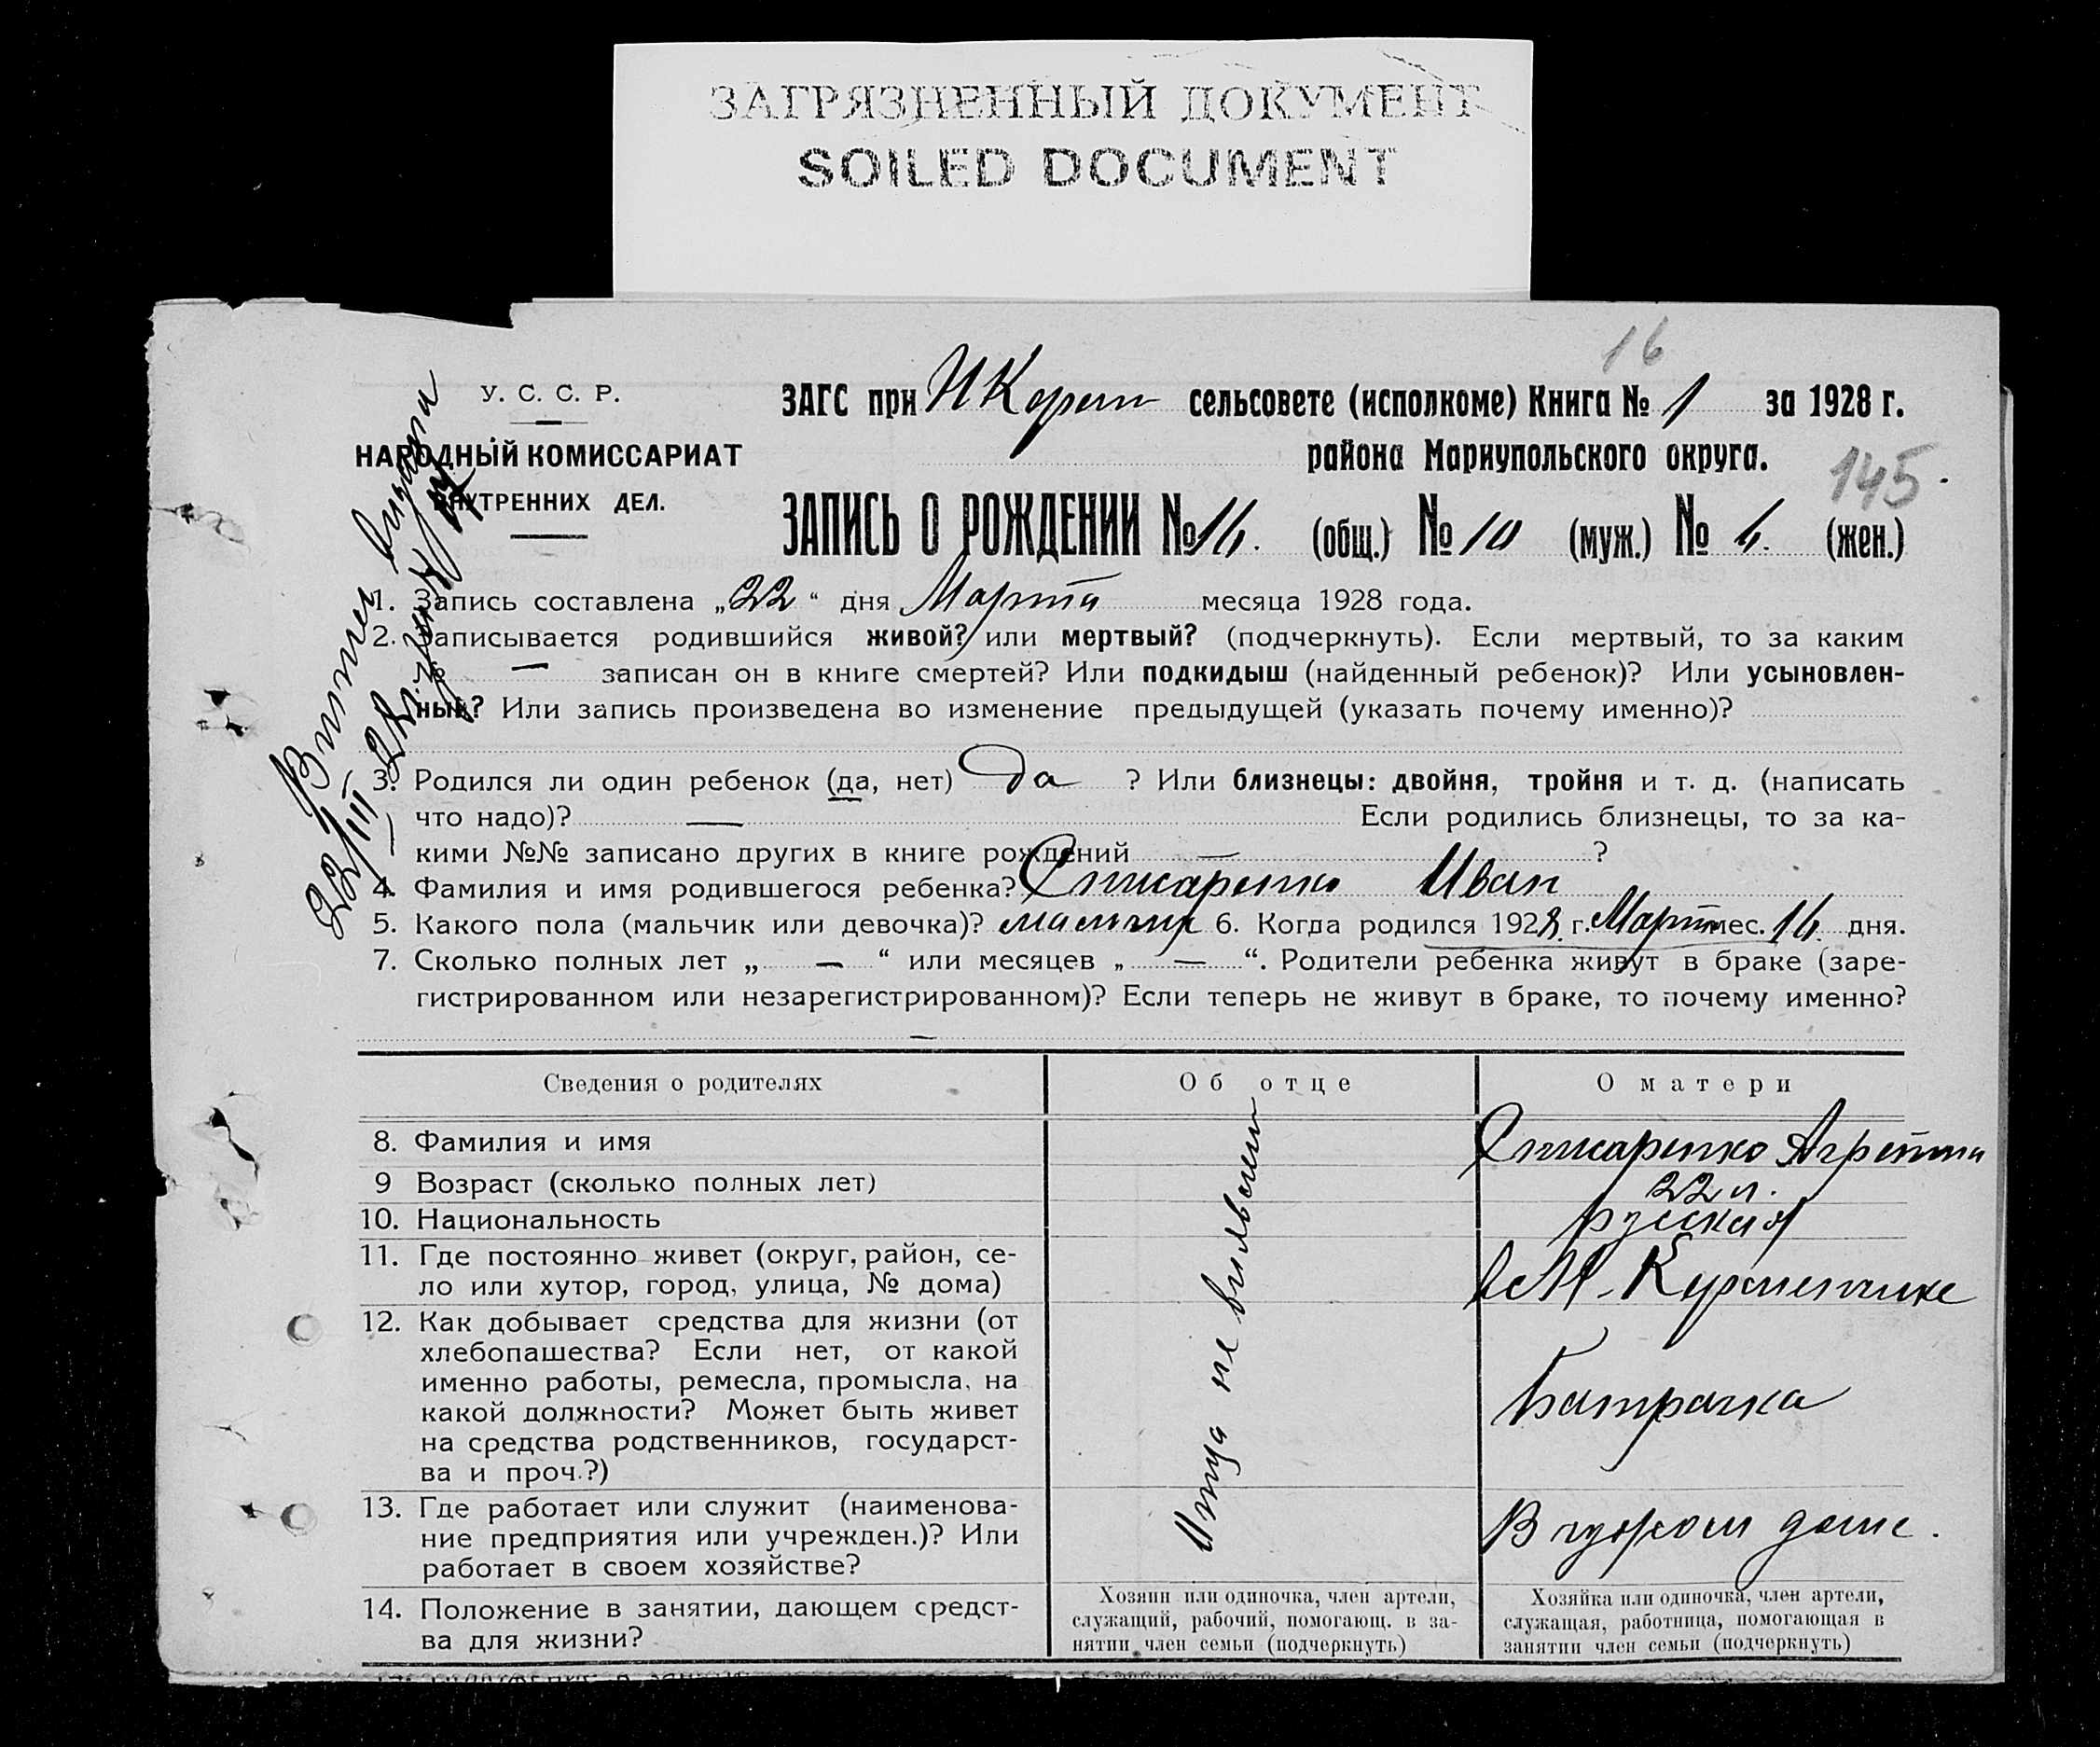 ЗАГРЯЗНЕННЫЙ ДОКУМЕНТ
SOILED DOCUMENT
16
У. С. С. Р.
НАРОДНЫЙ КОМИССАРИАТ
ВНУТРЕННИХ ДЕЛ.
ЗАГС при сельсовете (исполкоме) Книга № 1 за 1928 г.
района Мариупольского округа.
145
ЗАПИСЬ О РОЖДЕНИИ № 16. (общ.) № 10 (муж.) № 6. (жен.)
1. Запись составлена „22“ дня Марта месяца 1928 года.
2. Записывается родившийся живой? или мертвый? (подчеркнуть). Если мертвый, то за каким
№ — записан он в книге смертей? Или подкидыш (найденный ребенок)? Или усыновлен-
ный? Или запись произведена во изменение предыдущей (указать почему именно)?
3. Родился ли один ребенок (да, нет) Да ? Или близнецы: двойня, тройня и т. д. (написать
что надо)? — Если родились близнецы, то за ка-
кими №№ записано других в книге рождений — ?
4. Фамилия и имя родившегося ребенка? Слюсаренко Иван
5. Какого пола (мальчик или девочка)? мальчик 6. Когда родился 1928 г. Март мес. 16 дня.
7. Сколько полных лет „ — “ или месяцев „ — “. Родители ребенка живут в браке (заре-
гистрированном или незарегистрированном)? Если теперь не живут в браке, то почему именно?
—
Сведения о родителях Об отце О матери
8. Фамилия и имя
Слюсаренко
9 Возраст (сколько полных лет)
22 л.
10. Национальность
русская
11. Где постоянно живет (округ, район, се-
ло или хутор, город, улица, № дома)
12. Как добывает средства для жизни (от
хлебопашества? Если нет, от какой
именно работы, ремесла, промысла, на
какой должности? Может быть живет
на средства родственников, государст-
ва и проч.?)
Батрачка
Отца не выявлен
13. Где работает или служит (наименова-
ние предприятия или учрежден.)? Или
работает в своем хозяйстве?
В чужом доме.
14. Положение в занятии, дающем средст-
ва для жизни?
Хозяин или одиночка, член артели,
служащий, рабочий, помогающ. в за-
нятии член семьи (подчеркнуть)
Хозяйка или одиночка, член артели,
служащая, работница, помогающая в
занятии член семьи (подчеркнуть)